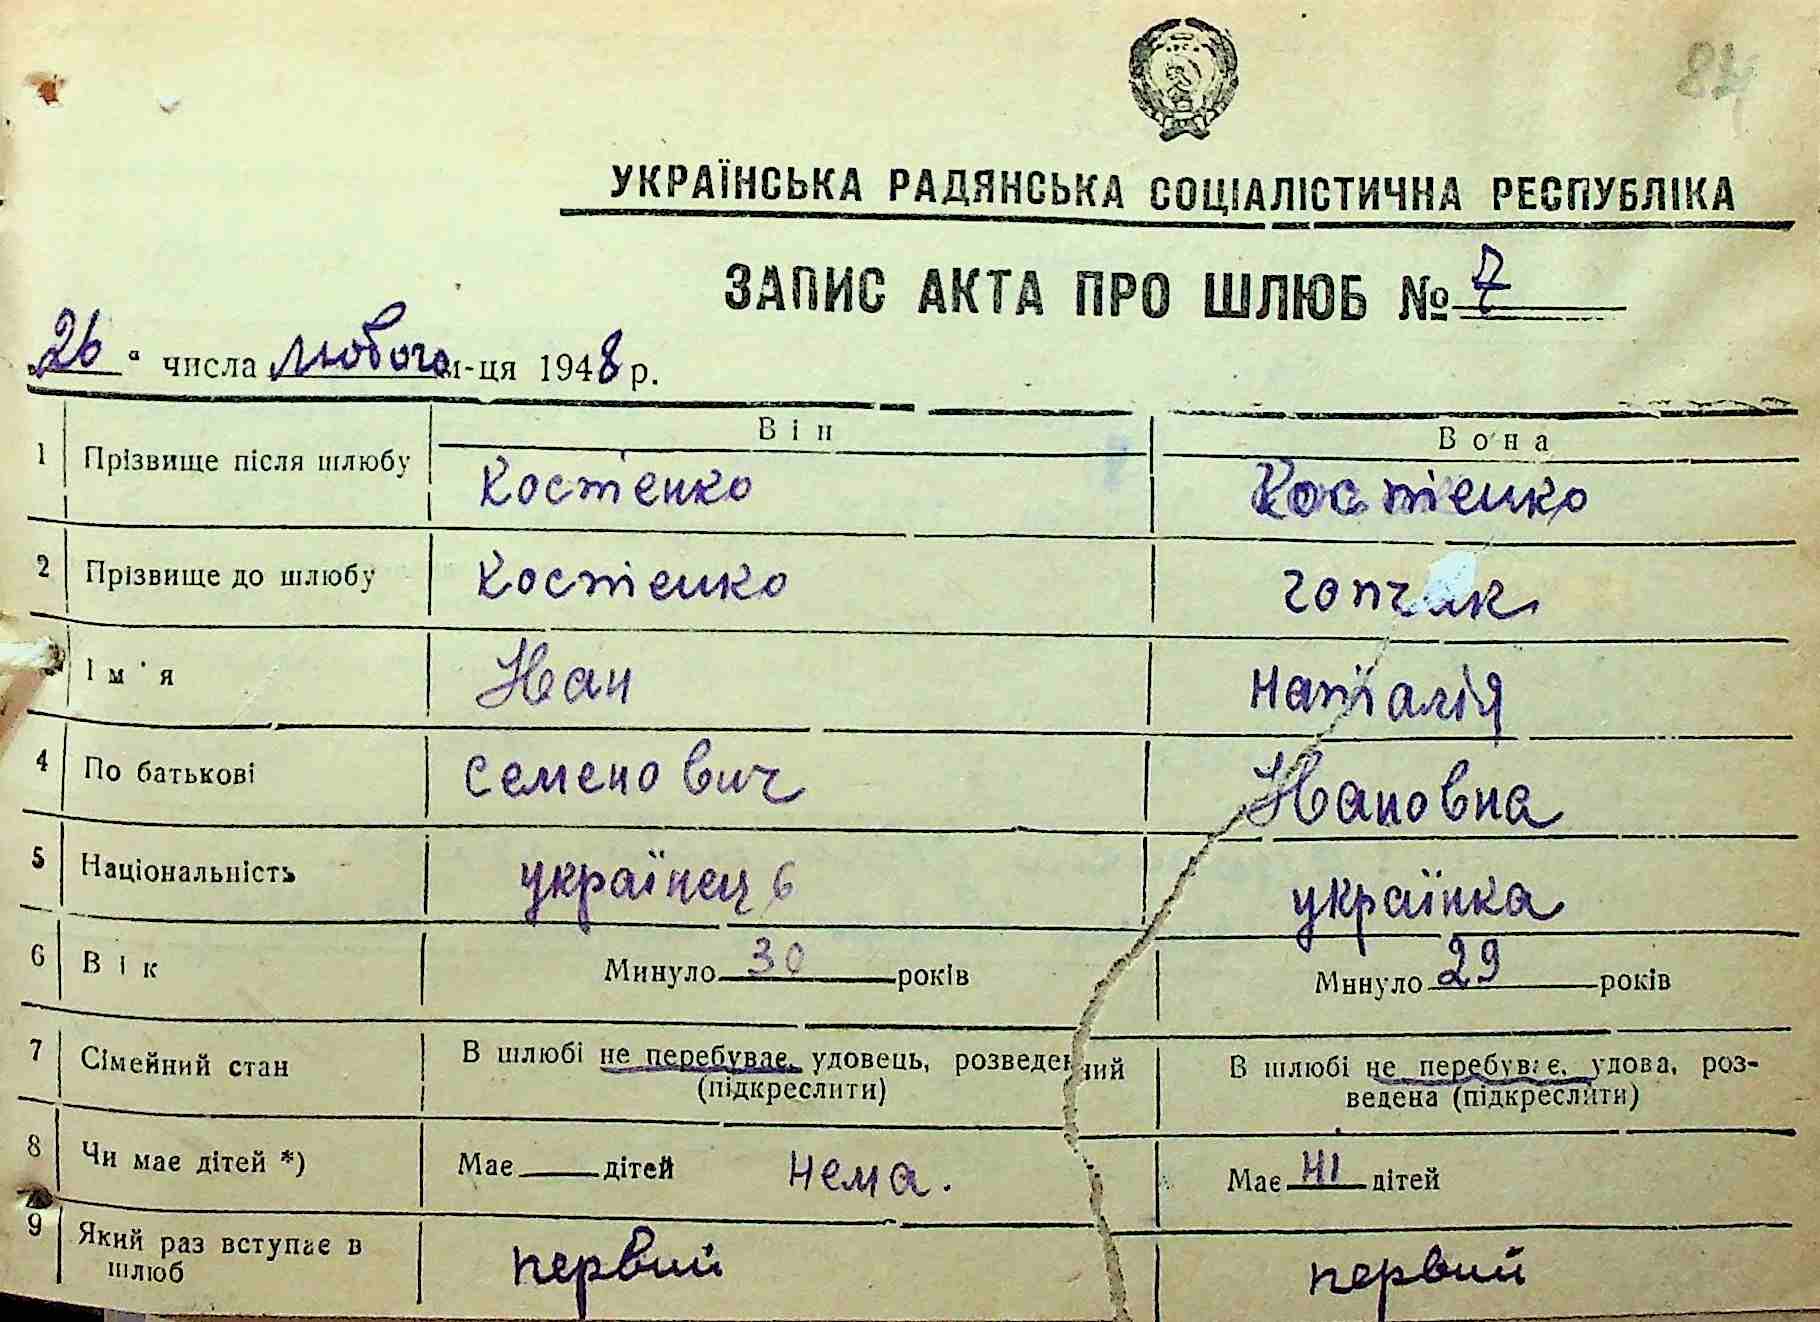 84
УКРАЇНСЬКА РАДЯНСЬКА СОЦІАЛІСТИЧНА РЕСПУБЛІКА
ЗАПИС АКТА ПРО ШЛЮБ № 7
„26“ числа лютого м-ця 1948 р.
Він Вона
1 Прізвище після шлюбу Костенко Костенко
2 Прізвище до шлюбу Костенко гопчак
Ім'я Іван наталія
4 По батькові семенович Івановна
5 Національність українець українка
6 Вік Минуло 30 років Минуло 29 років
7 Сімейний стан В шлюбі не перебуває, удовець, розведений В шлюбі не перебуває, удова, роз-
(підкреслити) ведена (підкреслити)
8 Чи має дітей *) Має дітей нема. Має ні дітей
9 Який раз вступає в первий первий
шлюб